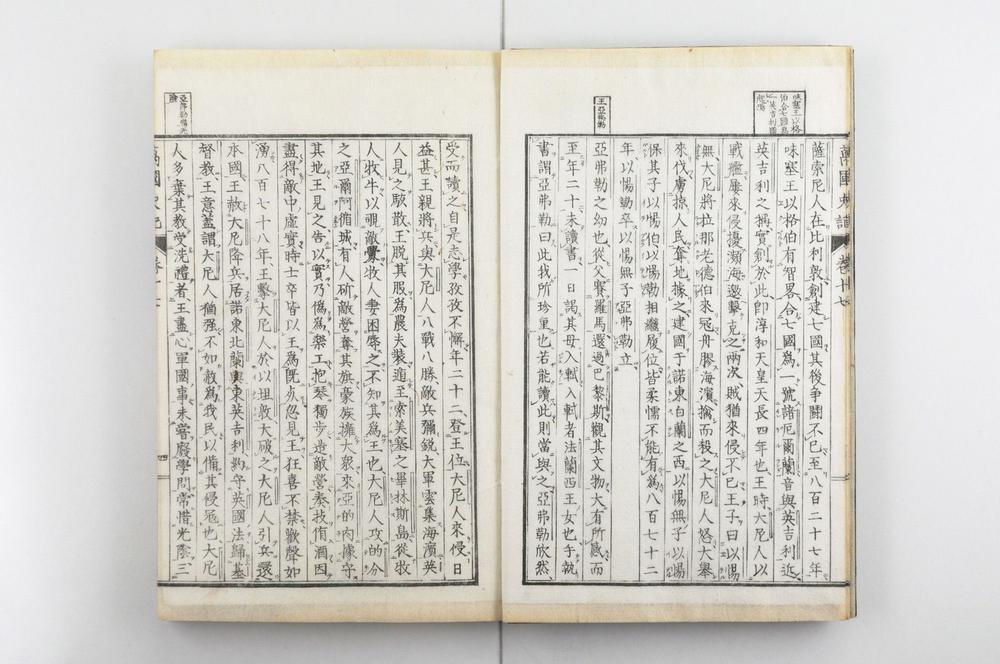 味塞王以格
伯合七國爲
一英吉利國
王亞弗勒
薩索尼人在比利敦創建七國其後爭鬭不已至八百二十七年
味塞王以格伯有智畧合七國爲一號諳厄爾蘭音與英吉利近
英吉利之稱實創於此卽淳和天皇天長四年也王時大尼人以
戰艦屢來侵擾瀕海邀擊克之兩次賊猶來侵不已王子曰以惕
無大尼將拉那老德伯來冦舟膠海濱擒而殺之大尼人怒大舉
來伐虜掠人民奪地據之建國于諾東白蘭之西以惕無子以惕
保其子以惕伯以惕勒相繼履位皆柔懦不能有爲八百七十二
年以惕勒卒以惕無子亞弗勒立
亞弗勒之幼也從父賽羅馬還過巴黎斯觀其文物大有所感而
至年二十未讀書一日謁其母入軾入軾者法蘭西王女也手執
書謂亞弗勒曰此我所珍重也若能讀此則當與之亞弗勒欣然
萬國史記 卷十七
受而讀之自是志學孜孜不懈年二十二登王位大尼人來侵日
益甚王親將兵與大尼人八戰八勝敵兵彌銳大軍雲集海濱英
人見之駭散王脫其服爲農夫裝遁至索美塞之畢林斯島從牧
人牧牛以覗敵釁牧人妻困辱之不知其爲王也大尼人攻的分
之亞爾阿備城有人斫敵營奪其旗豪族擁大衆來亞的內據守
其地王見之告以實乃僞爲樂工抱琴獨步造敵營奏技侑酒因
盡得敵中虛實時士卒皆以王爲旣亦忽見王狂喜不禁歡聲如
湧八百七十八年王擊大尼人於以坦敦大破之大尼人引兵還
本國王赦大尼降兵居諾東北蘭與東英吉利約守英國法歸基
督教王意蓋謂大尼人猶强不如赦爲我民以備其侵冦也大尼
人多棄其教受洗禮者王盡心軍國事未嘗廢學問常惜光陰三